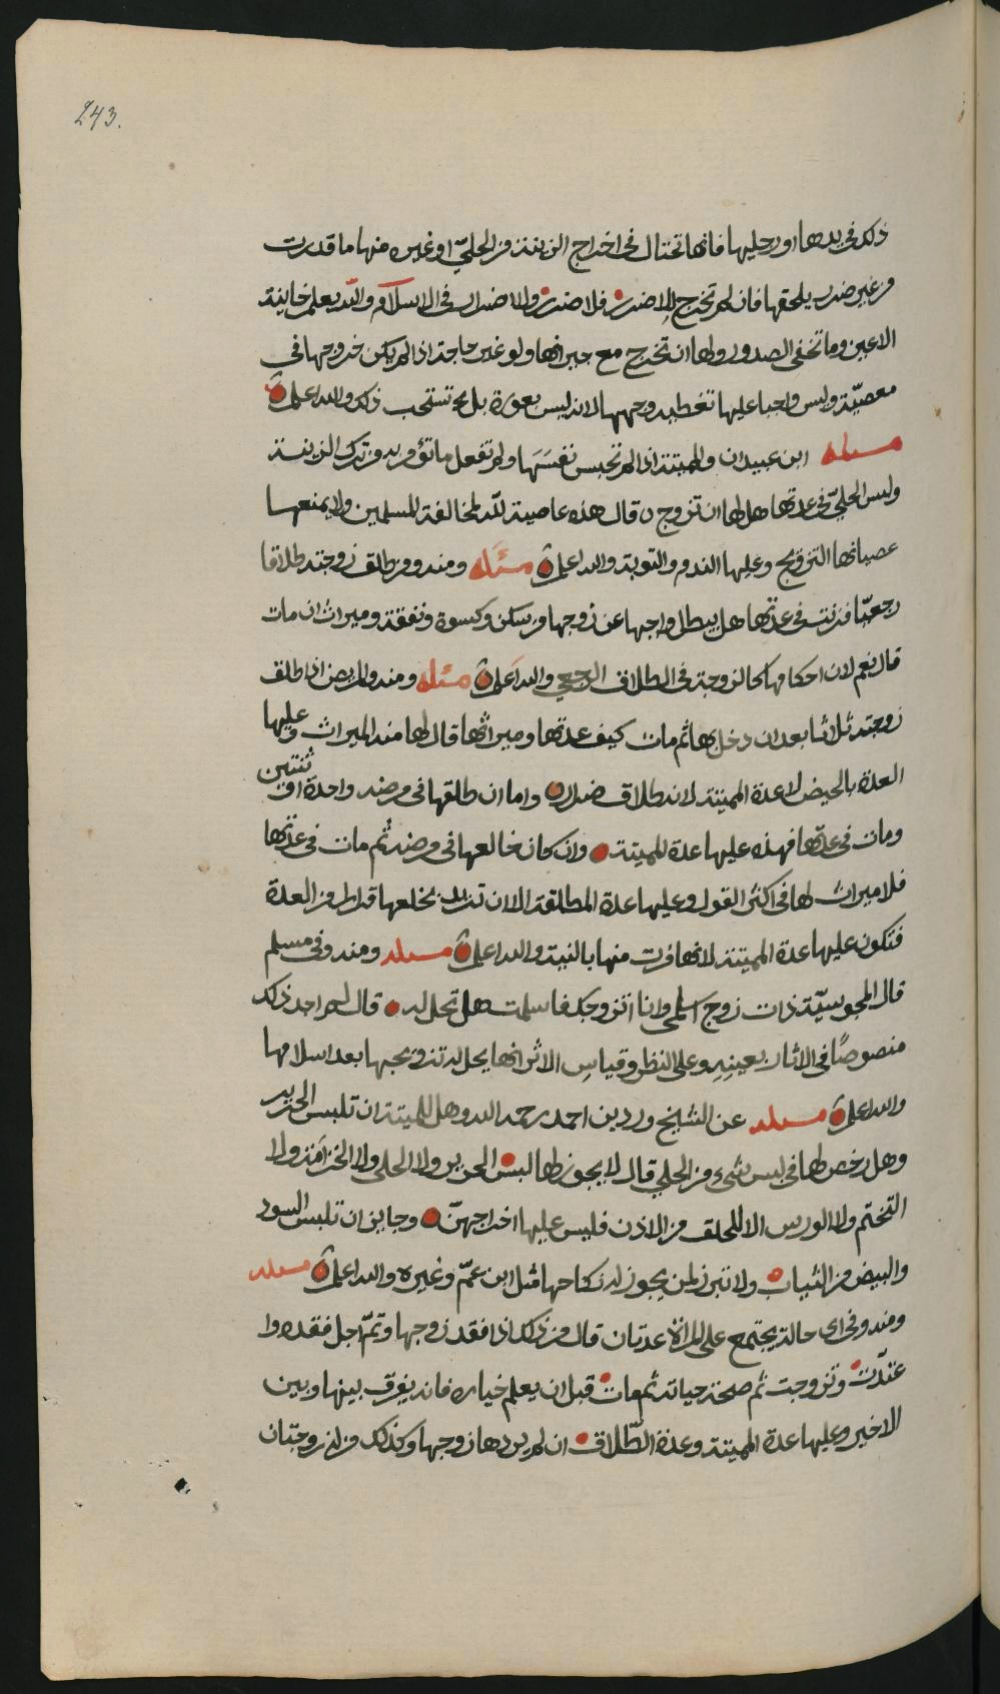 243.
ذلك في يدها او رجليها فانها تحتال في اخراج الزينة من الحليّ او غيره منها ما قدرت
من غير ضرر يلحقها فان لم تخرج الا ضرر فلا ضرر ولا اضرار في الاسلام والله يعلم خاينة
الاعين وما تخفي الصدور ولها ان تخرج مع جيرانها ولو غير حاجة اذا لم يكن خروجها في
معصيّة وليس واجبا عليها تغطية وجهها لانه ليس بعورة بل تستحب ذلك والله اعلم
مسئلة ابن عبيدان والمميتة اذا لم تحبس نفسَها ولم تفعل ما تؤمر به من ترك الزينة
ولبس الحليّ في عدتها هل لها ان تزوج قال هذه عاصية لله مخالفة للمسلمين ولا يمنعها
عصيانها التزويج وعليها الندم والتوبة والله اعلم مسئلة ومنه ومن طلق زوجته طلاقا
رجعيّا فزنت في عدتها هل يبطل واجبها عن زوجها من سكن وكسوة ونفقة وميراث ان مات
قال نعم لان احكامها كالزوجة في الطلاق الرجعي والله اعلم مسئلة ومنه والمريض اذا طلق
زوجته ثلاثا بعد ان دخل بها ثم مات كيف عدتها وميراثها قال لها منه الميراث وعليها
العدة بالحيض لا عدة المميتة لانه طلاق ضرار واما ان طلقها في مرضه واحدة او ثنتين
ومات في عدتها فهذه عليها عدة المميتة وان كان خالعها في مرضه ثم مات في عدتها
فلا ميراث لها في اكثر القول وعليها عدة المطلقة الا ان تريد بخلعها فرارا من العدة
فتكون عليها عدة المميتة لانها فرت منها بالنية والله اعلم مسئلة ومنه وفي مسلم
قال لمجوسيّة ذات زوج اسلمي وانا اتزوجك فاسلمت هل تحل له قال لم اجد ذلك
منصوصًا في الاثار بعينه وعلى النظر وقياس الاثر انها يحل له تزويجها بعد اسلامها
والله اعلم مسئلة عن الشيخ ورد بن احمد رحمه الله وهل للمميتة ان تلبس الحرير
وهل رخص لها في لبس شيء من الحلي قال لا يجوز لها لبس الحرير ولا الحلي ولا الخزامة ولا
التختم ولا الورس الا للحلق من الاذن فليس عليها اخراجهنّ وجايز ان تلبس السود
والبيض من الثياب ولا تبرز لمن يجوز له نكاحها مثل ابن عمّ وغيره والله اعلم مسئلة
ومنه وفي اي حالة يجتمع على المراة عدتان قال من ذلك اذا فقد زوجها وتمّ اجل فقده وا
عتدّت وتزوجت ثم صحة حياته ثم مات قبل ان يعلم خياره فانه يفرق بينها وبين
الاخير وعليها عدة المميتة وعدة الطّلاق ان لم يردها زوجها وكذلك من له زوجتان